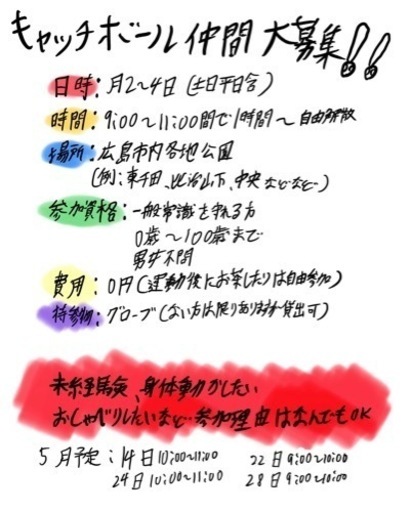 キャッチボール仲間 大募集!!
日時：月2〜4日（土日平日含）
時間：9:00〜11:00間で1時間〜自由解散
場所：広島市内各地公園
（例：東千田、比治山下、中央 などなど…）
参加資格：一般常識を守れる方
0歳〜100歳まで
男女不問
費用：0円（運動後にお茶したりは自由参加）
持参物：グローブ（ない方は限りありますが貸出可）
未経験、身体動かしたい
おしゃべりしたいなど…参加理由はなんでもOK
5月予定：14日10:00〜11:00 22日9:00〜10:00
24日10:00〜11:00 28日9:00〜10:00